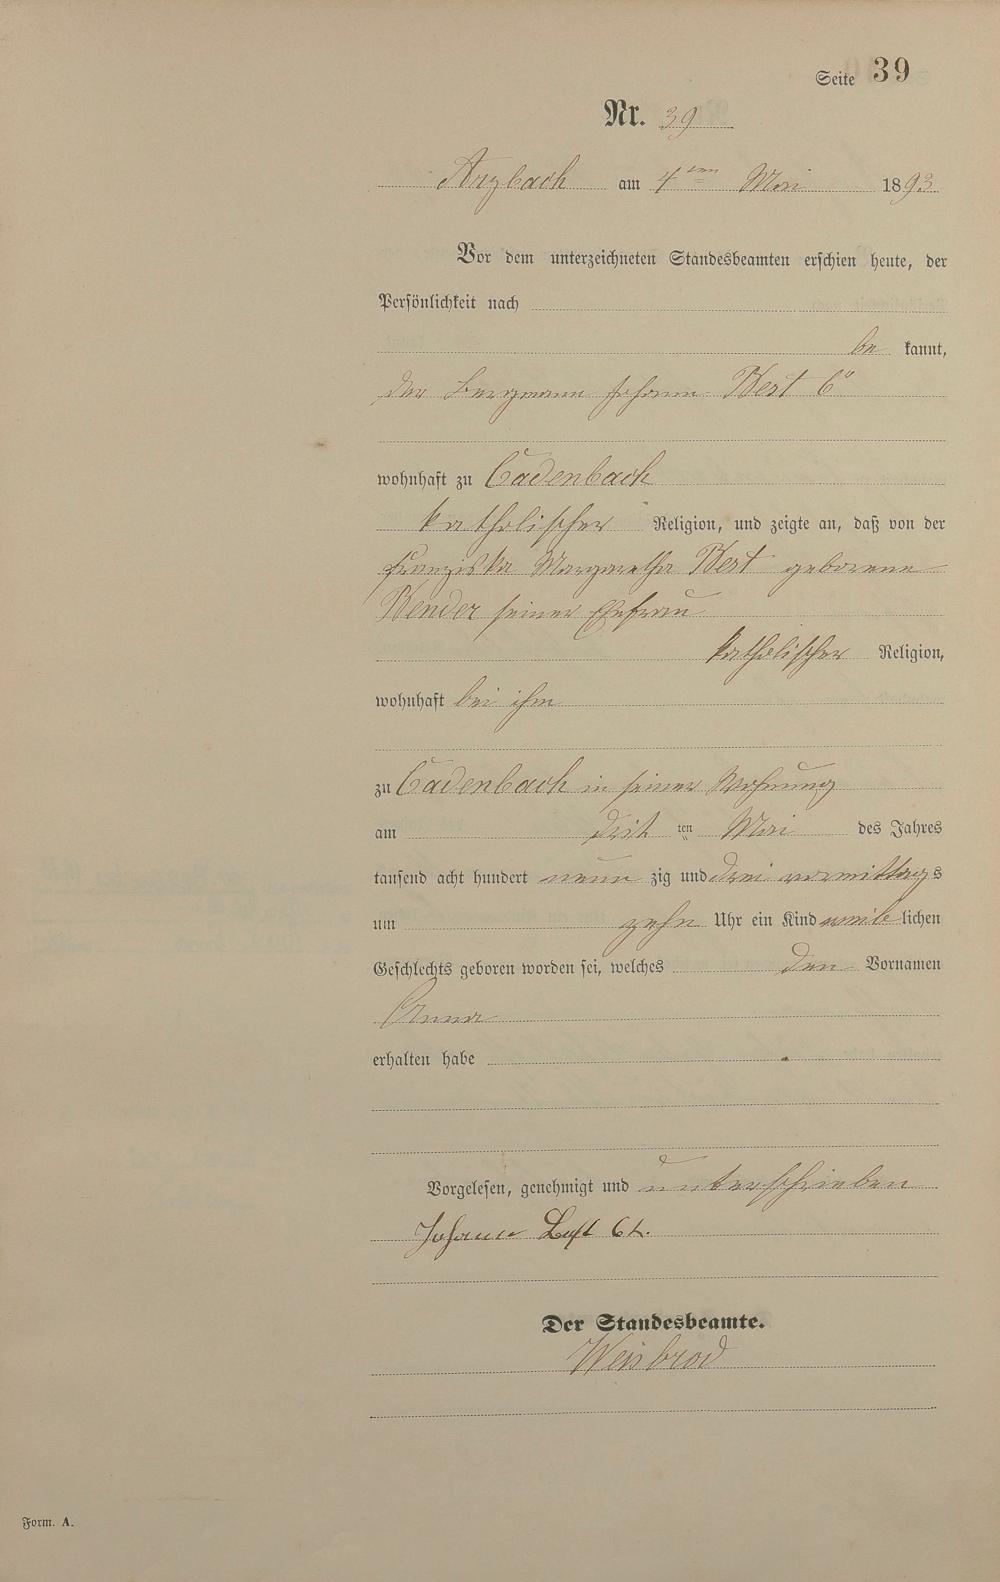 Seite 39
Nr. 39
Arzbach am 4ten Mai 1893
Vor dem unterzeichneten Standesbeamten erschien heute, der
Persönlichkeit nach
be kannt,
der Bergmann Johann Best 6r
wohnhaft zu Cadenbach
katholischer Religion, und zeigte an, daß von der
Franziska Margaretha Best geborene
Bender seiner Ehefrau
katholischer Religion,
wohnhaft bei ihm
zu Cadenbach in seiner Wohnung
am drit ten Mai des Jahres
tausend acht hundert neun zig und drei vormittags
um zehn Uhr ein Kind weib lichen
Geschlechts geboren worden sei, welches den Vornamen
Anna
erhalten habe
Vorgelesen, genehmigt und unterschrieben
Johann 6t.
Der Standesbeamte.
Weisbrod
Form. A.